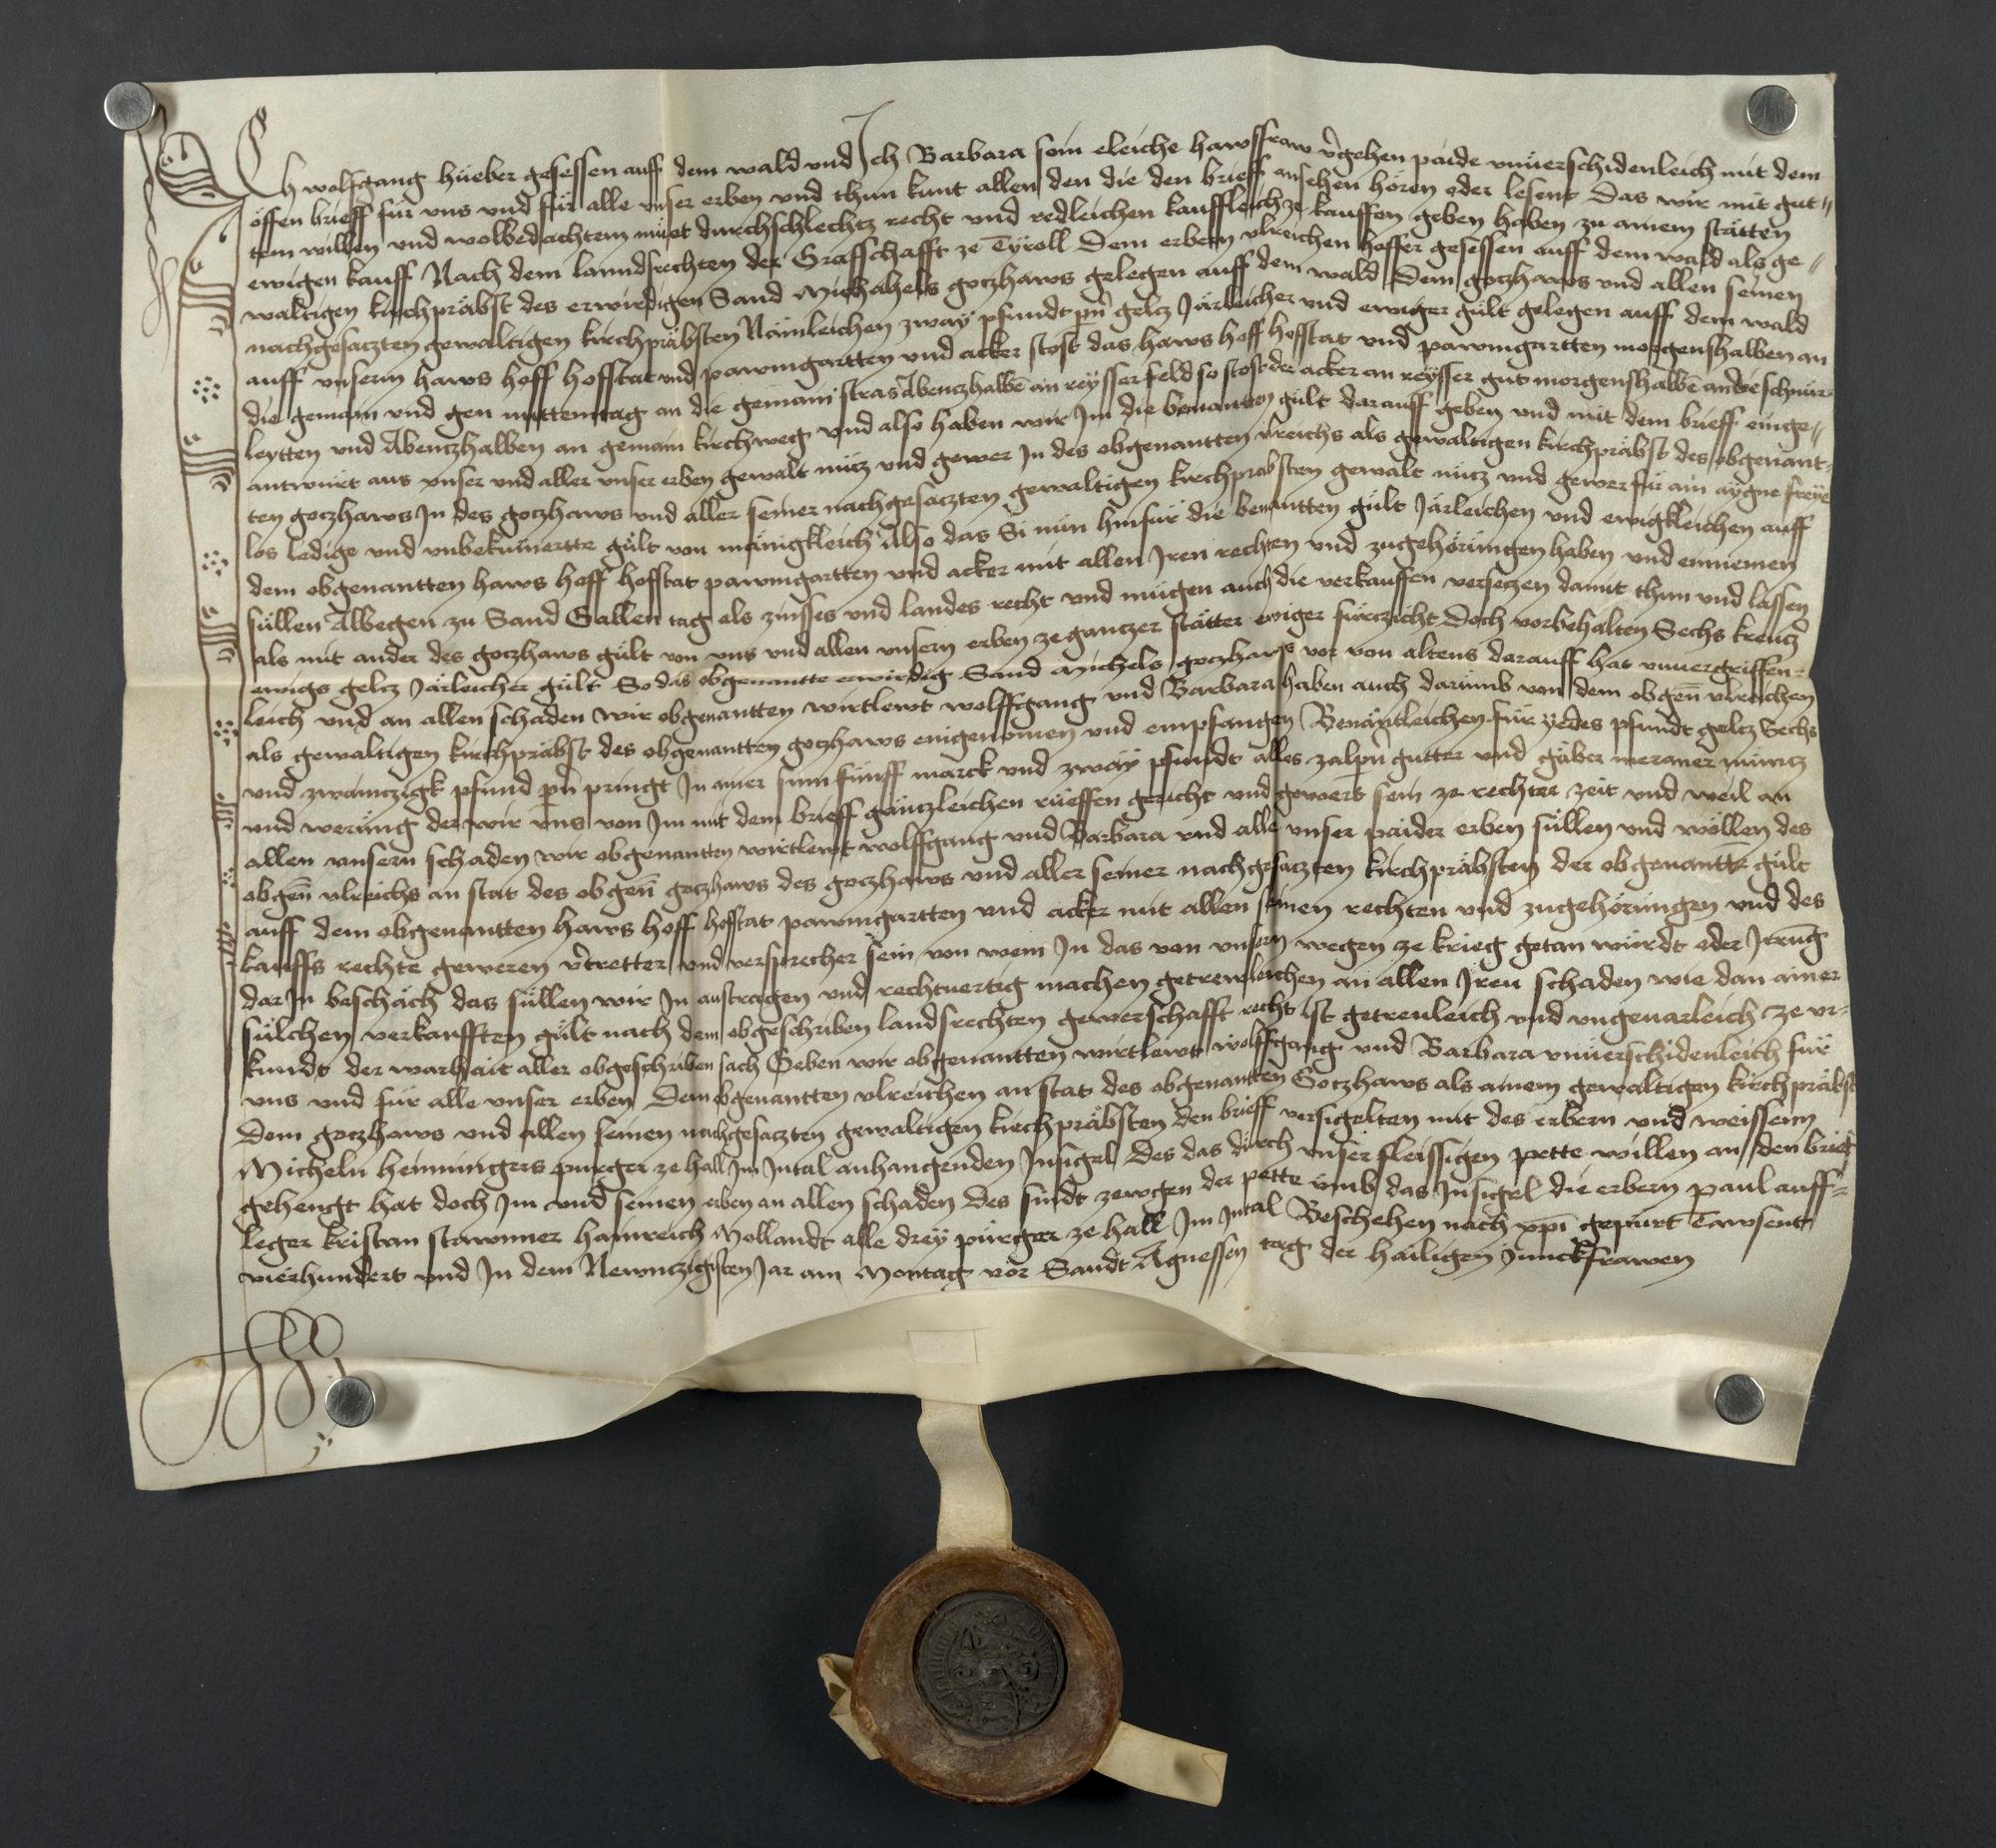 Ich wolfgang hüeber gesessen auff dem wald und Ich Barbara sein eleiche hawsfraw v̄gehen paide unverschidenleich mit dem
offen brieff für uns und für alle unser erben und thun kunt allen den die den brieff ansehen hören oder lesent Das wir mit gut=
tem willen und wolbedachtem müet durchschlechtz recht und redleichen kauffleich ze kauffen geben haben zu ainem stätten
ewigen kauff Nach dem lanndsrechten der Graffschafft ze Tyroll Dem erbern ulreichen hoffer gesessen auff dem wald als ge=
waltigen kirchpräbst des erwirdigen Sand Michahels goczhaws gelegen auff dem wald Dem goczhaws und allen seinen
nachgesaczten gewaltigen kirchpräbsten Nämleichen zway pfundt pn̄ gelcz Järleicher und ewiger gült gelegen auff dem wald
auff unserm haws hoff hofstat und pawmgartten und acker stost das haws hoff hofstat und pawmgartten morgenshalben an
die gemain und gen mittemtag an die gemain stras Abenczhalbn̄ an reysser feld so stost der acker an reysser gut morgenshalbn̄ an die schnür=
leytten und Abenczhalben an gemain kirchweg und also haben wir Im die benantten gült darauff geben und mit dem brieff einge=
antwurt aus unser und aller unser erben gewalt nücz und gewer In des obgenantten ulreichs als gewaltigen kirchpräbst des obgenant=
ten goczhaws In des goczhaws und aller seiner nachgesaczten gewaltigen kirchpräbsten gewalt nücz und gewer für ain aygne freye
los ledige und unbekümertte gült von mänigkleich Also das Si nun hinfür die benantten gült Järleichen und ewigkleichen auff
dem obgenantten haws hoff hofstat pawmgartten und acker mit allen Iren rechten und zugehörungen haben und einnemen
süllen Albegen zu Sand Gallen tag als zinsses und landes recht und mügen auch die verkauffen verseczen damit thun und lassen
als mit ander des goczhaws gült von uns und allen unsern erben ze ganczer stätter ewiger fürczicht Doch vorbehalten Sechs kreucz̄
ewigs gelcz Järleicher gült So das obgenantte erwirdig Sand Michels goczhaws vor von altens darauff hat unvergriffen=
leich und an allen schaden wir obgenantten wirtlewt wolffgang und Barbara haben auch darümb von dem obgen̄ ulreichen
als gewaltigen kirchpräbst des obgenantten goczhaws eingenomen und empfangen Benäntleichen für yedes pfundt gelcz Sechs
und zwainczigk pfund pn̄ pringt In ainer sum fünff marck und zway pfundt alles zalpn̄ gutter und gäber meraner münncz
und werung der wir uns von Im mit dem brieff gänczleichen rüeffen gericht und gewert sein ze rechter zeit und weil an
allen unsern schaden wir obgenantten wirtlewt wolffgang und Barbara und alle unser paider erben süllen und wöllen des
obgen̄ ulreichs an stat des obgen̄ goczhaws des goczhaws und aller seiner nachgesaczten kirchpräbsten der obgenantn̄ gült
auff dem obgenantten haws hoff hofstat pawmgartten und acker mit allen seinen rechten und zugehörungen und des
kauffs rechte geweren v̄tretter und versprecher sein von wem In das von unsern wegen ze krieg getan würdt oder Irrung
dar In beschäch das süllen wir In austragen und rechtvertig machen getrewleichen an allen Iren schaden wie dan ainer
sülchen verkaufften gült nach dem obgeschriben landsrechten gewerschafft recht ist getreuleich und ungevarleich ze ur=
kundt der warhait aller obgeschriben sach Geben wir obgenantten wirtlewt wolffgang und Barbara unverschidenleich für
uns und für alle unser erben Dem obgenantten ulreichen an stat des obgenantten Goczhaws als ainem gewaltigen kirchpräbst
Dem goczhaws und allen seinen nachgesaczten gewaltigen kirchpräbsten den brieff versigelten mit des erbern und weissenn
Micheln heiningers purger ze hall Im Intal anhangenden Insigel Des das durch unser fleissigen pette willen an den brief
gehengt hat doch Im und seinen erben an allen schaden Des sindt zewgen der pette umb das Insigel die erbern paul auff=
leger kristan stawnner hainreich Mollandt alle drey purger ze hall Im Intal Beschehen nach xp̄i gepurt Tawsent
vierhundert und In dem Newnczigisten Jar am Montag vor Sandt Agnessen tag der hailigen Junckfrawen